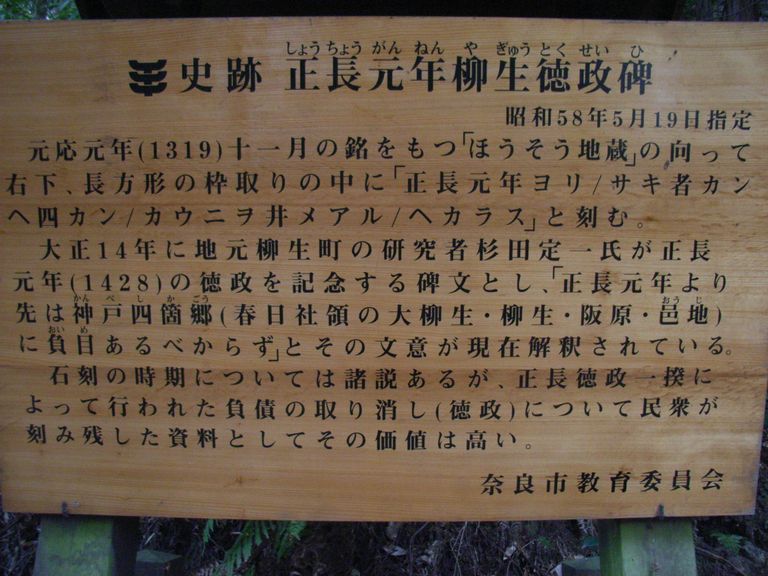 史跡 正長元年柳生徳政碑
昭和58年5月19日指定
元応元年(1319)十一月の銘をもつ「ほうそう地蔵」の向って
右下、長方形の枠取りの中に「正長元年ヨリ/サキ者カン
ヘ四カン/カウニヲ井メアル/ヘカラス」と刻む。
大正14年に地元柳生町の研究者杉田定一氏が正長
元年(1428)の徳政を記念する碑文とし、「正長元年より
先は神戸四箇郷(春日社領の大柳生・柳生・阪原・邑地)
に負目あるべからず」とその文意が現在解釈されている。
石刻の時期については諸説あるが、正長徳政一揆に
よって行われた負債の取り消し(徳政)について民衆が
刻み残した資料としてその価値は高い。
奈良市教育委員会